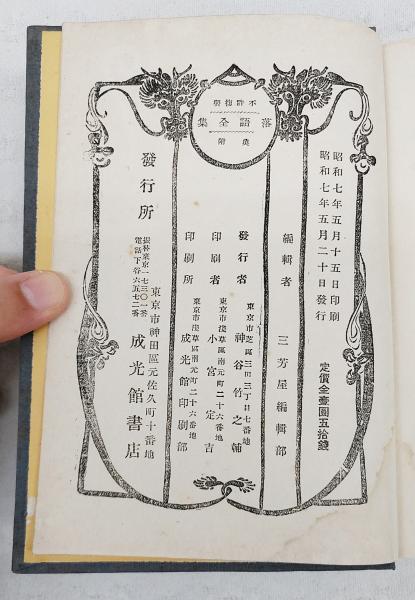 不許複製
落語全集
奥附
昭和七年五月十五日印刷
昭和七年五月二十日發行
定價金壹圓五拾錢
編輯者 三芳屋編輯部
東京市芝區三田三丁目七番地
發行者 神谷竹之輔
東京市淺草區南元町二十六番地
印刷者 小宮定吉
東京市淺草區南元町二十六番地
印刷所 成光館印刷部
發行所
東京市神田區元佐久町十番地
成光館書店
振替東京一七三〇一番
電話下谷六五七二番